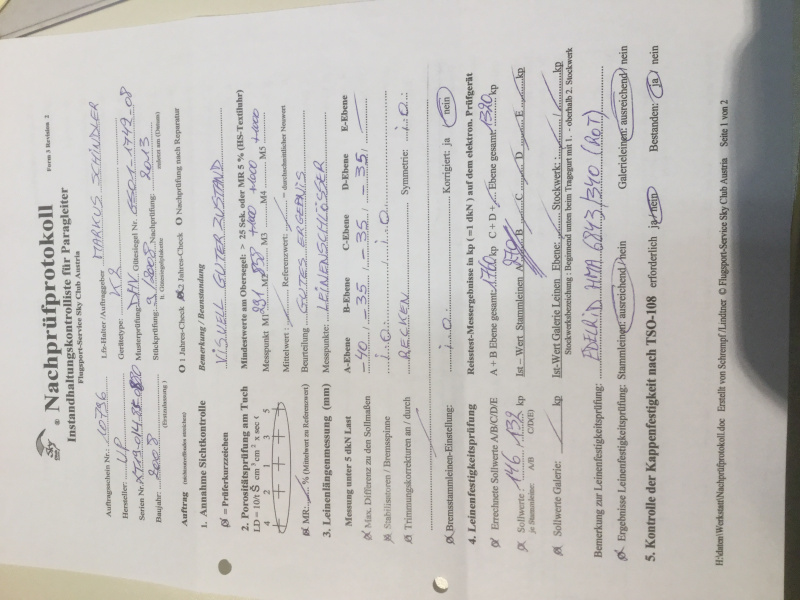 Form 3 Revision 2
® Nachprüfprotokoll
Instandhaltungskontrolliste für Paragleiter
Flugsport-Service Sky Club Austria
Auftragsschein Nr.: 10796 Lfz-Halter /Auftraggeber MARKUS SCHINDLER
Hersteller: UP Gerätetype: K2
Serien Nr. Musterprüfung: DHV Gütesiegel Nr.
Baujahr: 2008 Stückprüfung: 3/2008 Nachprüfung: 2013
Auftrag O 1 Jahres-Check O 2 Jahres-Check O Nachprüfung nach Reparatur
1. Annahme Sichtkontrolle Bemerkung / Beanstandung
= Prüferkurzzeichen VISUELL GUTER ZUSTAND
2. Porositätsprüfung am Tuch Mindestwerte am Obersegel: > 25 Sek. oder MR 5 % (HS-Textiluhr)
Messpunkt M1 291 M2 M3 M4 M5
4 2 1 3 5
Mittelwert: Referenzwert: = durchschnittlicher Neuwert
MR: % (Mittelwert zu Referenzwert) Beurteilung GUTES ERGEBNIS
3. Leinenlängenmessung (mm) Messpunkte: LEINENSCHLÖSSER
Messung unter 5 dkN Last A-Ebene B-Ebene C-Ebene D-Ebene E-Ebene
Max. Differenz zu den Sollmaßen -40 / -35 / -35 / -35
Stabilisatoren / Bremsspinne i.O. i.O.
Trimmungskorrekturen an / durch RECKEN Symmetrie: i.O.
Bremsstammleinen-Einstellung: i.O. Korrigiert: ja / nein
4. Leinenfestigkeitsprüfung Reisstest-Messergebnisse in kp (=1 dkN ) auf dem elektron. Prüfgerät
Errechnete Sollwerte A/B/C/D/E A + B Ebene gesamt: 1760 kp C + D + Ebene gesamt: 1320 kp
Sollwerte : 146 / 132 kp Ist – Wert Stammleinen A B C D E kp
je Stammleine: A/B C/D(E)
Sollwerte Galerie: kp Ist-Wert Galerie Leinen Ebene: Stockwerk: / kp
Stockwerksbezeichnung : Beginnend unten beim Tragegurt mit 1. - oberhalb 2. Stockwerk
Bemerkung zur Leinenfestigkeitsprüfung: EDELRID HMA 6243/340 (ROT)
Ergebnisse Leinenfestigkeitsprüfung: Stammleinen: ausreichend / nein Galerieleinen: ausreichend / nein
5. Kontrolle der Kappenfestigkeit nach TSO-108 erforderlich ja / nein Bestanden: ja / nein
H:\daten\Werkstatt\Nachprüfprotokoll.doc Erstellt von Schrempf /Lindtner © Flugsport-Service Sky Club Austria Seite 1 von 2